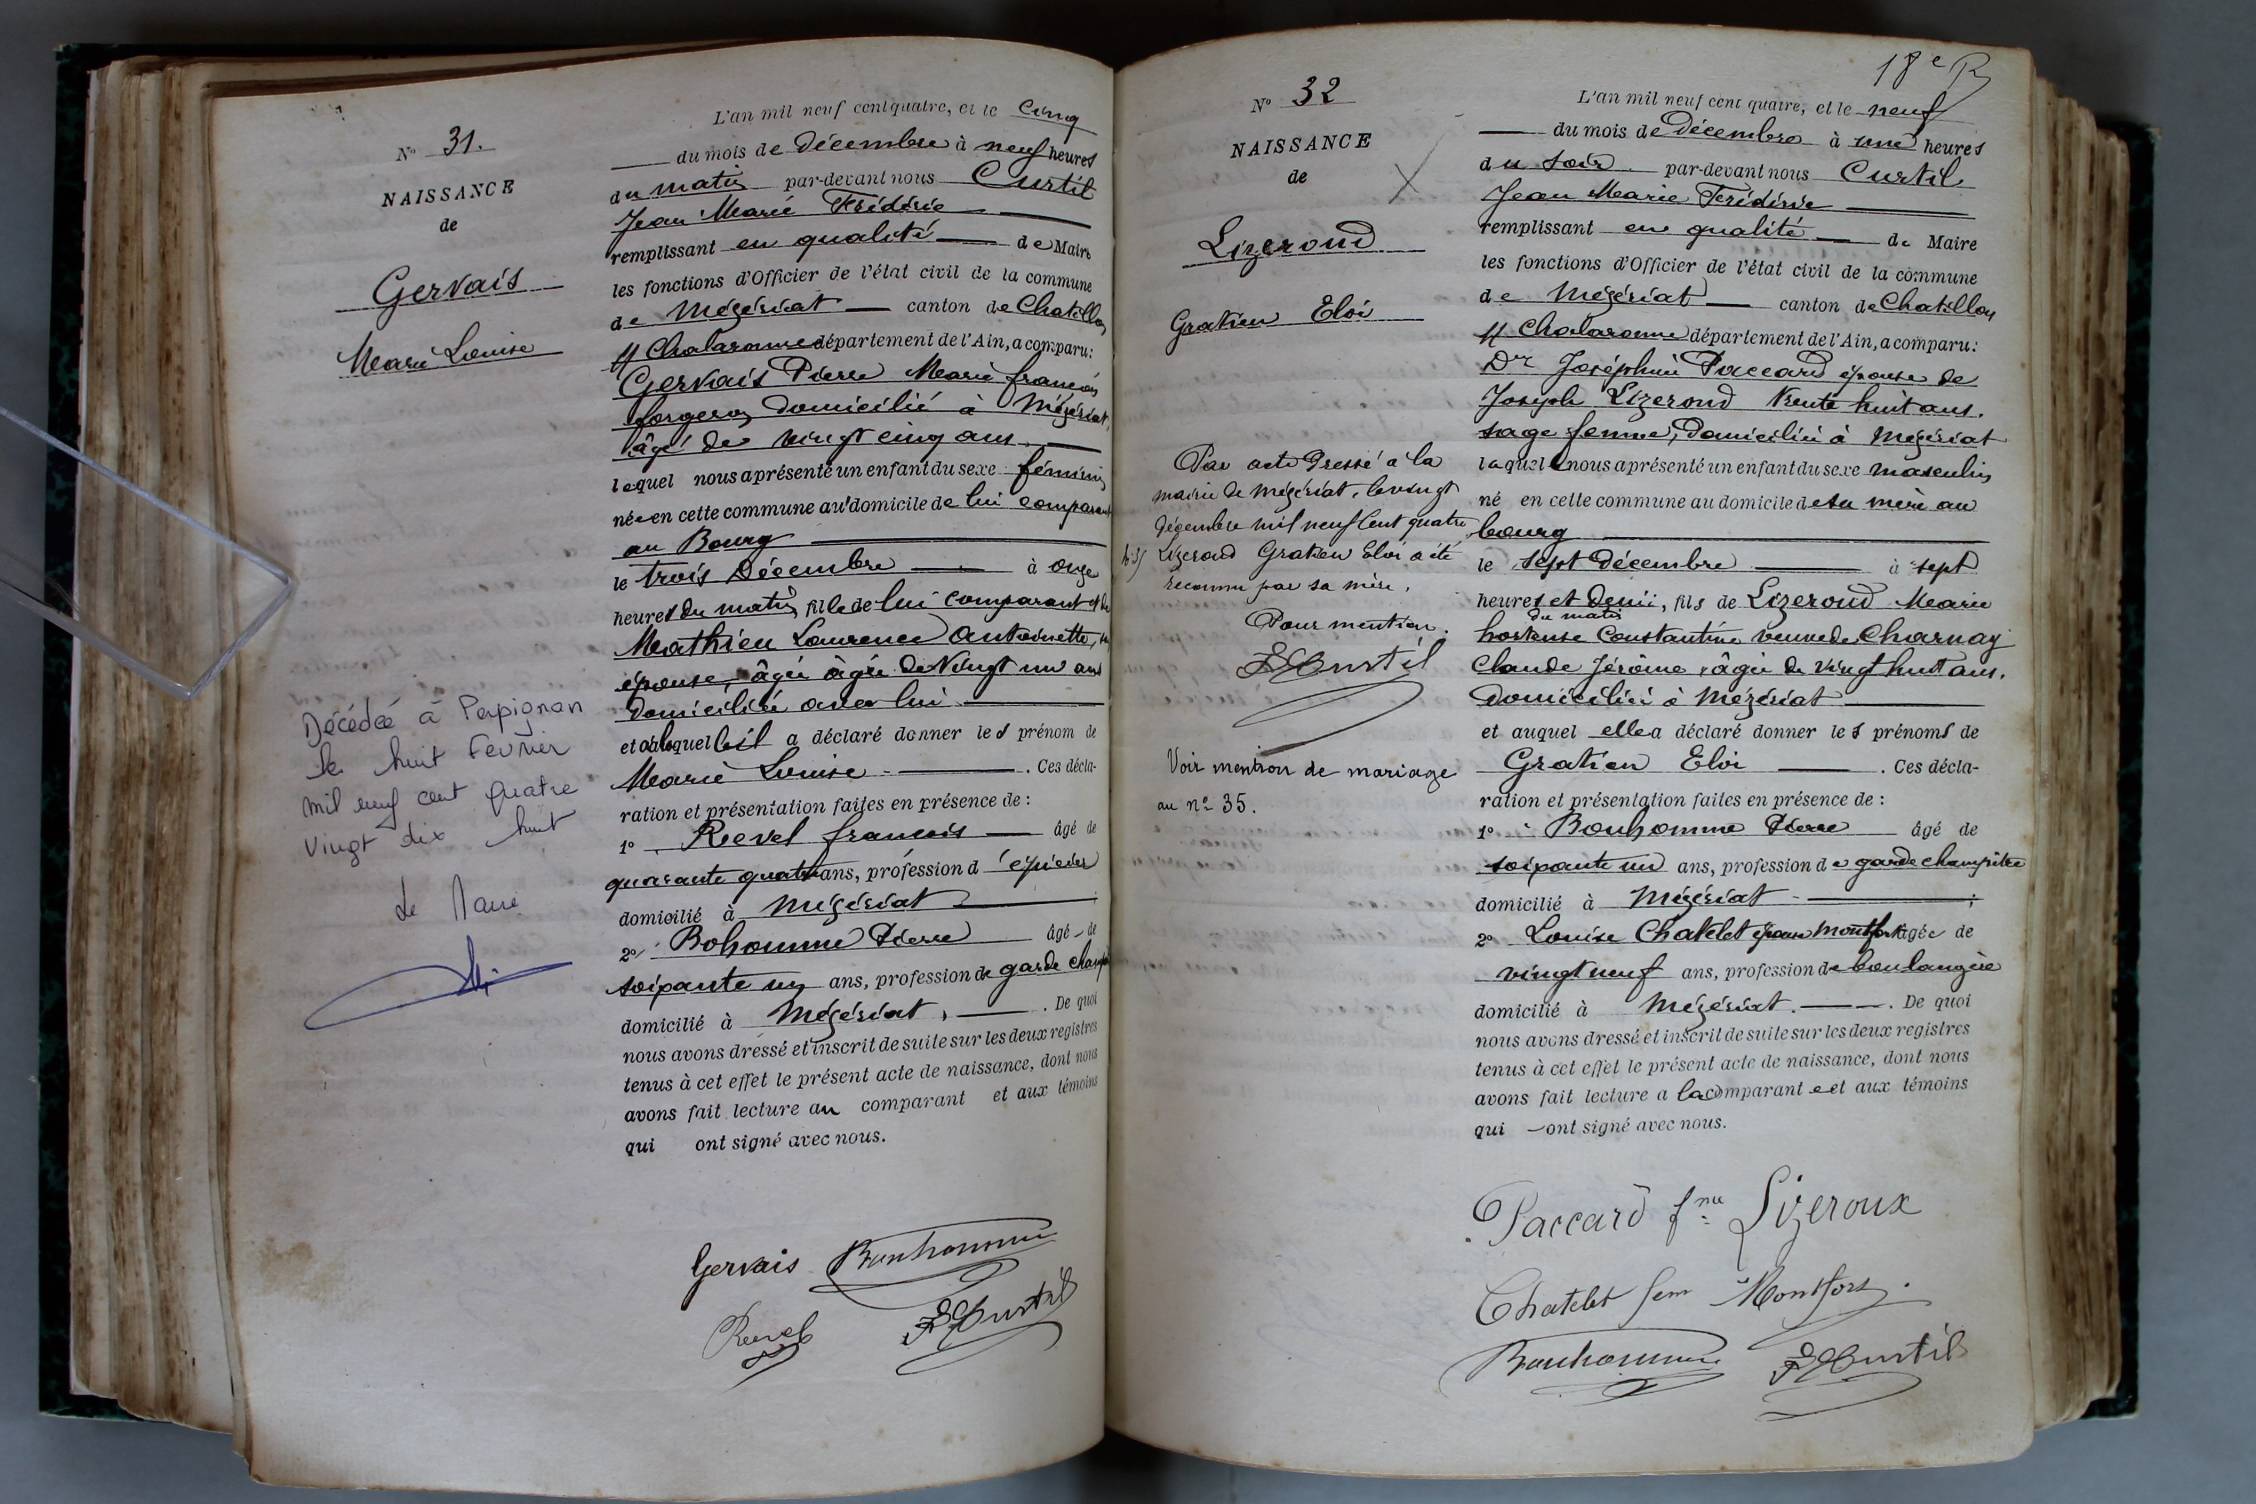 N° 31.
NAISSANCE
de
Gervais
Marie Louise
Décédée à Perpignan
le huit Février
mil neuf cent quatre
vingt dix huit
Le Maire
L'an mil neuf cent quatre, et le cinq
du mois de Décembre à neuf heures
du matin par-devant nous Curtil
Jean Marie Frédéric
remplissant en qualité de Maire
les fonctions d'Officier de l'état civil de la commune
de Mézériat canton de Chatillon
s/ Chalaronne département de l'Ain, a comparu:
Gervais Pierre Marie françois
forgeron domicilié à Mézériat,
âgé de vingt cinq ans
lequel nous a présenté un enfant du sexe féminin
née en cette commune au domicile de lui comparant
au Bourg
le trois Décembre à onze
heures du matin, fille de lui comparant et de
Mathieu Laurence Antoinette, sa
épouse, âgée âgée de Vingt un ans
domiciliée avec lui
et à laquelle il a déclaré donner les prénom de
Marie Louise . Ces décla-
ration et présentation faites en présence de :
1° Revel françois âgé de
quarante quatre ans, profession d'épicier
domicilié à Mézériat ;
2° Bohomme Pierre âgé de
soixante un ans, profession de garde champ
domicilié à Mézériat, . De quoi
nous avons dressé et inscrit de suite sur les deux registres
tenus à cet effet le présent acte de naissance, dont nous
avons fait lecture au comparant et aux témoins
qui ont signé avec nous.
Gervais Bonhomme
Revel F Curtil
18e R
N° 32
NAISSANCE
de
Lizeroud
Gratien Eloi
Par acte dressé à la
mairie de Mézériat, le vingt
décembre mil neuf cent quatre
Lizeroud Gratien Eloi a été
reconnu par sa mère.
Pour mention.
F Curtil
Voir mention de mariage
au n° 35.
L'an mil neuf cent quatre, et le neuf
du mois de Décembre à une heures
du soir par-devant nous Curtil
Jean Marie Frédéric
remplissant en qualité de Maire
les fonctions d'Officier de l'état civil de la commune
de Mézériat canton de Chatillon
s/ Chalaronne département de l'Ain, a comparu:
De Joséphine Paccard épouse de
Joseph Lizeroud trente huit ans.
sage femme, domiciliée à Mézériat
laquelle nous a présenté un enfant du sexe masculin
né en cette commune au domicile de sa mère au
bourg
le sept décembre à sept
heures et demie, fils de Lizeroud Marie
du matin
hortense Constantine veuve de Charnay
Claude Jérôme, âgée de vingt huit ans.
domiciliée à Mézériat
et auquel elle a déclaré donner les prénoms de
Gratien Eloi . Ces décla-
ration et présentation faites en présence de :
1° Bonhomme Pierre âgé de
soixante un ans, profession de garde champêtre
domicilié à Mézériat ;
2° Louise Chatelet épouse Montfort âgée de
vingt neuf ans, profession de boulangère
domicilié à Mézériat. . De quoi
nous avons dressé et inscrit de suite sur les deux registres
tenus à cet effet le présent acte de naissance, dont nous
avons fait lecture a la comparante et aux témoins
qui ont signé avec nous.
Paccard fme Lizeroux
Chatelet fem Montfort.
Bonhomme F Curtil